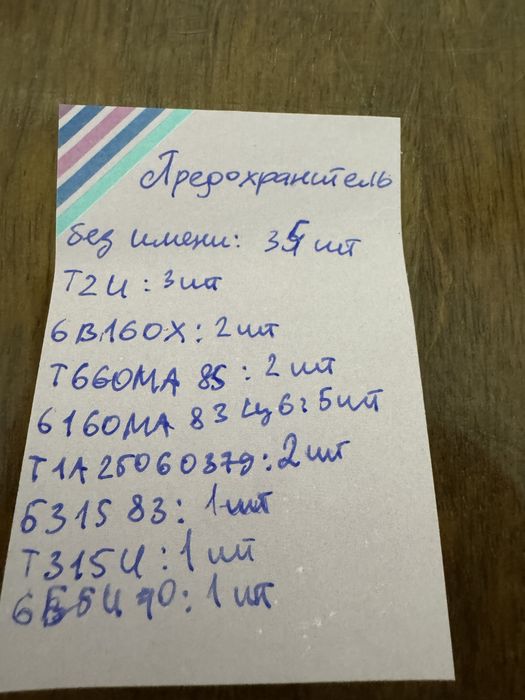 Предохранитель
без имени: 35 шт
Т2Ц : 3 шт
6В160Х : 2 шт
Т660МА 85 : 2 шт
6160МА 83 Ц6 : 5 шт
Т1А250 60379 : 2 шт
6315 83 : 1 шт
Т315Ц : 1 шт
: 1 шт